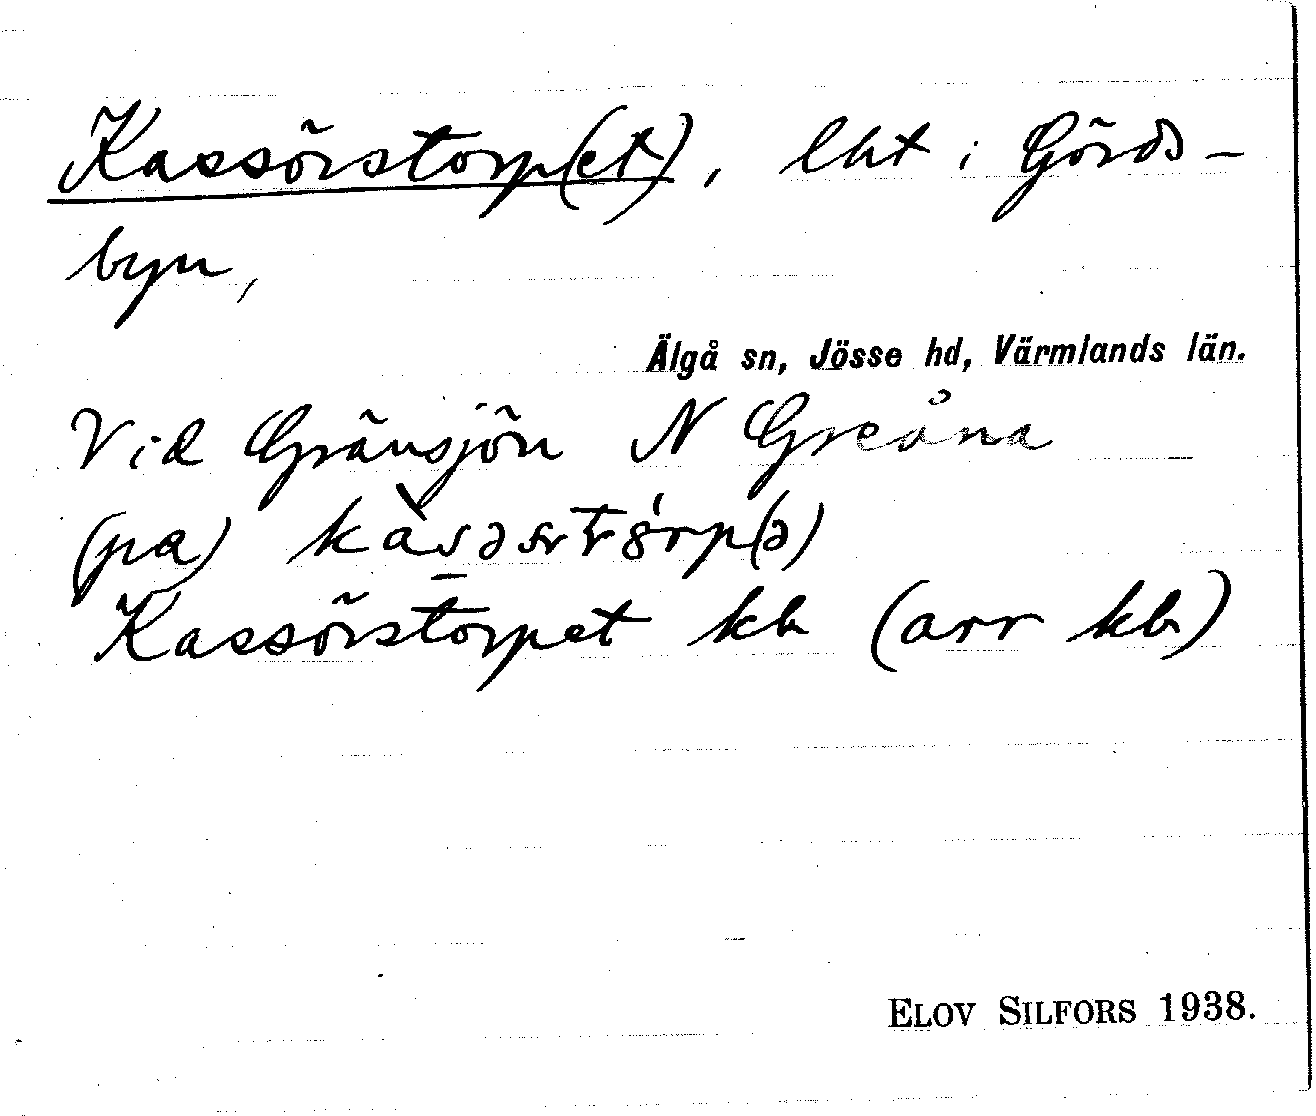 Kassörstorp(et), lht i Görds-
byn,
Älgå sn, Jösse hd, Värmlands län.
Vid Gränsjön N Greåna
(på)
Kassörstorpet kb (arr kb)
ELOV SILFORS 1938.